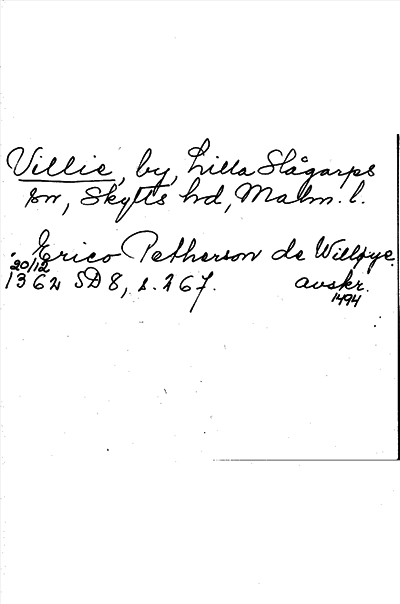 Villie, by, Lilla Slågarps
sn, Skytts hd, Malm. l.
. Erico Petherson de Willpye.
20/12
1362 SD 8, s. 267. avskr.
1494